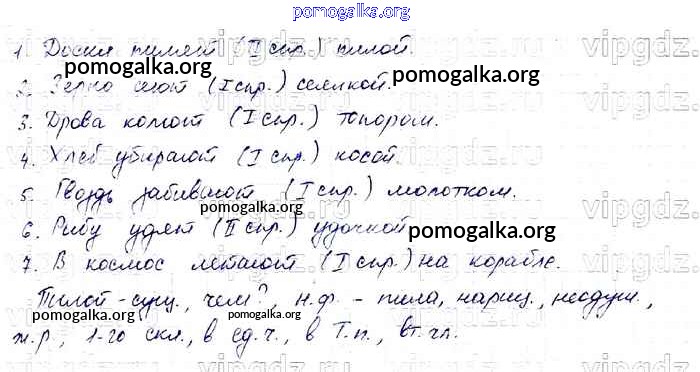 pomogalka.org
1. Доски пилят (II спр.) пилой.
2. Зерно сеют (I спр.) сеялкой.
3. Дрова колют (I спр.) топором.
4. Хлеб убирают (I спр.) косой.
5. Гвоздь забивают (I спр.) молотком.
6. Рыбу удят (II спр.) удочкой
7. В космос летают (I спр.) на корабле.
Пилой - сущ., чем?, н.ф. - пила, нариц., неодуш.,
ж.р, 1-го скл., в ед.ч., в Т.п., вт.чл.
pomogalka.org
pomogalka.org
pomogalka.org
pomogalka.org
pomogalka.org
pomogalka.org
pomogalka.org
pomogalka.org
vipgdz
vipgdz